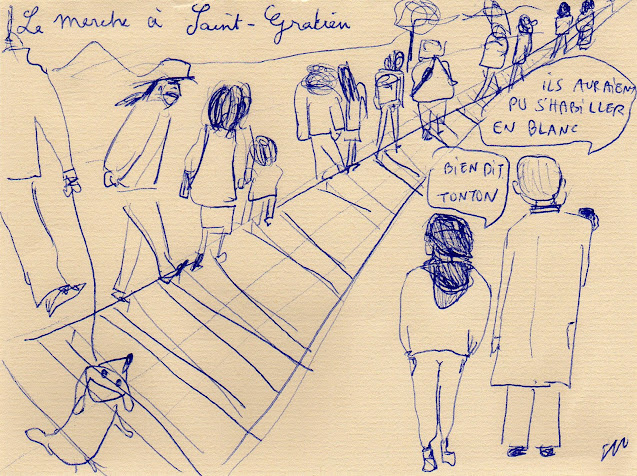 La marche à Saint-Gratien
ILS AURAIEN
PU S'HABILLER
EN BLANC
BIEN DIT
TONTON